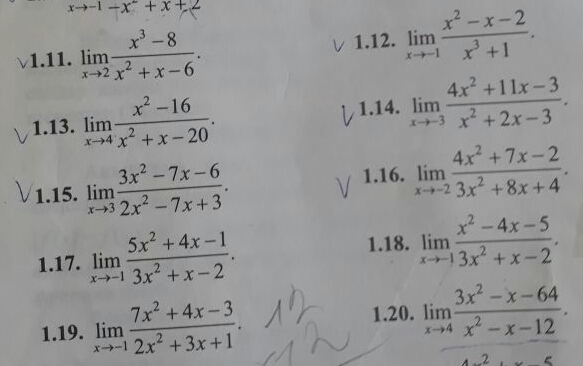 x→-1 -x² + x + 2
1.11. lim x→2 (x³ - 8)/(x² + x - 6).
1.12. lim x→-1 (x² - x - 2)/(x³ + 1).
1.13. lim x→4 (x² - 16)/(x² + x - 20).
1.14. lim x→-3 (4x² + 11x - 3)/(x² + 2x - 3).
1.15. lim x→3 (3x² - 7x - 6)/(2x² - 7x + 3).
1.16. lim x→-2 (4x² + 7x - 2)/(3x² + 8x + 4).
1.17. lim x→-1 (5x² + 4x - 1)/(3x² + x - 2).
1.18. lim x→-1 (x² - 4x - 5)/(3x² + x - 2).
1.19. lim x→-1 (7x² + 4x - 3)/(2x² + 3x + 1).
1.20. lim x→4 (3x² - x - 64)/(x² - x - 12).
12